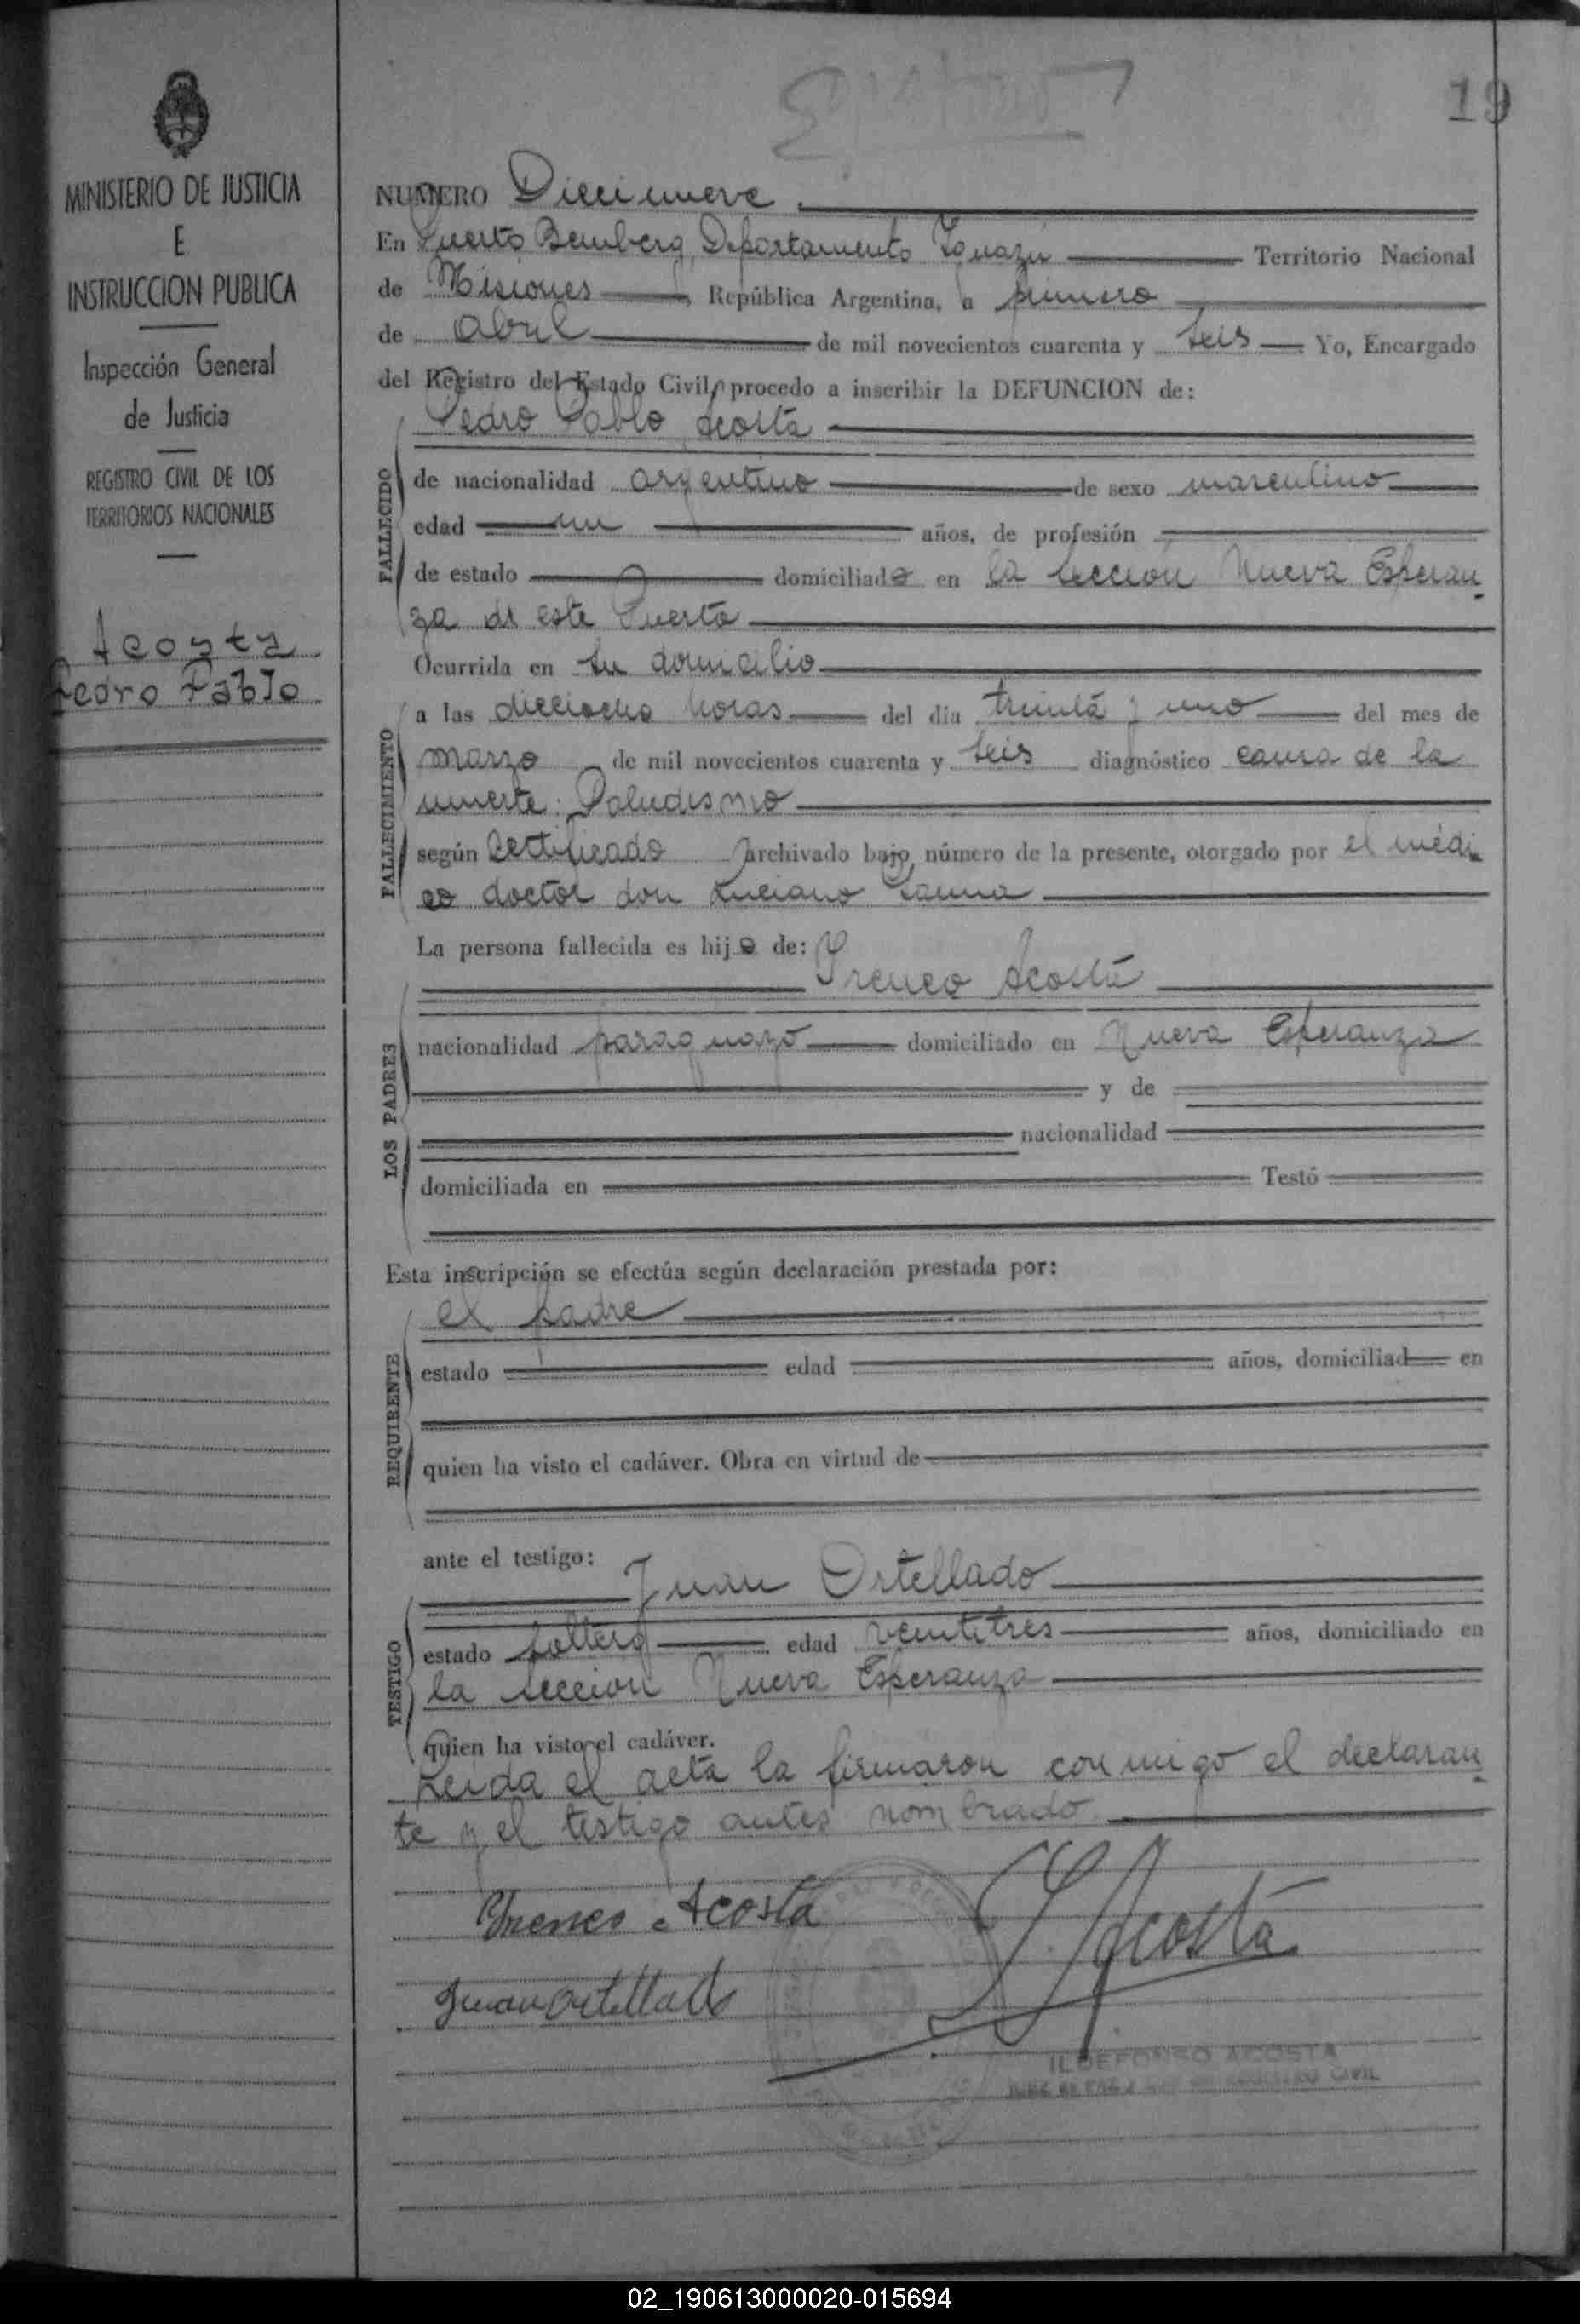 19
MINISTERIO DE JUSTICIA
E
INSTRUCCION PUBLICA
Inspección General
de Justicia
REGISTRO CIVIL DE LOS
TERRITORIOS NACIONALES
Acosta
Pedro Pablo
NUMERO Diecinueve
En Puerto Bemberg, Departamento Iguazú Territorio Nacional
de Misiones República Argentina, a primero
de abril de mil novecientos cuarenta y seis Yo, Encargado
del Registro del Estado Civil, procedo a inscribir la DEFUNCION de:
Pedro Pablo Acosta
FALLECIDO
de nacionalidad argentino de sexo masculino
edad un años, de profesión
de estado domiciliado en la sección Nueva Esperan
za de este Puerto
Ocurrida en su domicilio
FALLECIMIENTO
a las dieciocho horas del día treinta y uno del mes de
marzo de mil novecientos cuarenta y seis diagnóstico causa de la
muerte: Paludismo
según certificado archivado bajo número de la presente, otorgado por el médi
co doctor don Luciano
La persona fallecida es hijo de:
Yreneo Acosta
LOS PADRES
nacionalidad paraguayo domiciliado en Nueva Esperanza
y de
nacionalidad
domiciliada en Testó
Esta inscripción se efectúa según declaración prestada por:
el padre
REQUIRENTE
estado edad años, domiciliad en
quien ha visto el cadáver. Obra en virtud de
ante el testigo:
Juan Ortellado
TESTIGO
estado soltero edad veintitres años, domiciliado en
la sección Nueva Esperanza
quien ha visto el cadáver.
Leida el acta la firmaron conmigo el declaran
te y el testigo antes nombrado
Yreneo Acosta
Acosta
Juan Ortellado
ILDEFONSO ACOSTA
JUEZ DE PAZ REGISTRO CIVIL
02_190613000020-015694